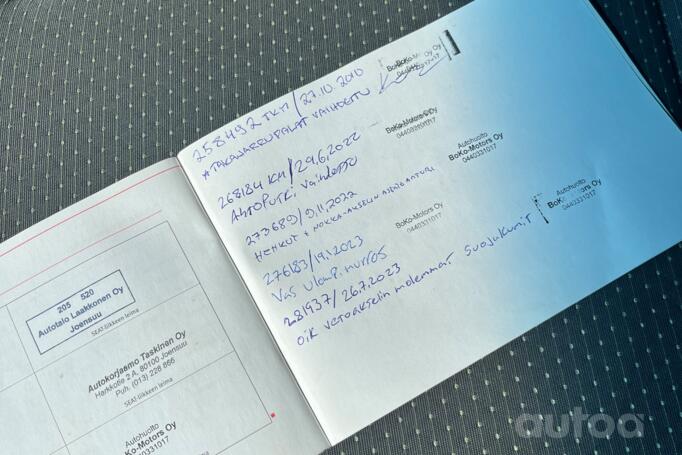 258492 TKM/27.10.2010
# TAKAJARRUPALAT VAIHDETTU
BoKo-Motors Oy
268184 KM/29.6.2022
Ahtoputki vaihdettu
BoKo-Motors Oy
0440331017
273689/9.11.2022
HEHKUT + NOKKA-AKSELIN ASENTOANTURI
Autohuolto
BoKo-Motors Oy
0440331017
276183/19.1.2023
Vas Ulompi murros
BoKo-Motors Oy
0440331017
281937/26.7.2023
oik vetoakselin molemmat suojakumit
Autohuolto
BoKo-Motors Oy
0440331017
205 520
Autotalo Laakkonen Oy
Joensuu
SEAT-liikkeen leima
Autokorjaamo Taskinen Oy
Harkkotie 2 A, 80100 Joensuu
Puh. (013) 228 866
SEAT-liikkeen leima
Autohuolto
Ko-Motors Oy
0440331017
autoa